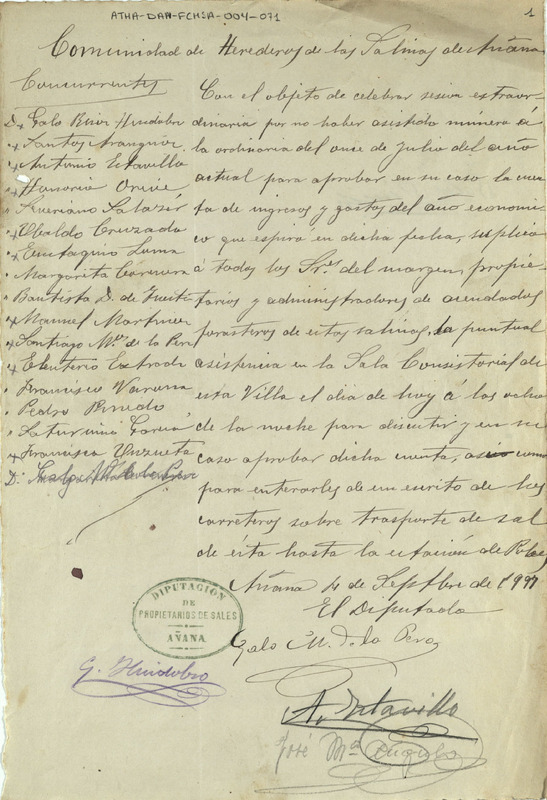 ATHA-DAN-FCHSA-004-071
1
Comunidad de Herederos de las Salinas de Añana
Concurrentes
D. Galo Ruiz Huidobro
Santos Aranguiz
Antonio Estavillo
Honorio Orive
Severiano Salazar
Ubaldo Cruzado
Eustaquio Luma
Margarita
Bautista D. de Tuesta
Manuel Martinez
Santiago Mz. de la Pera
Eleuterio
Francisco Varona
Pedro Pinedo
Saturnino Garcia
Francisca Unzueta
D.
Con el objeto de celebrar sesion extraor
dinaria por no haber asistido número á
la ordinaria del once de Julio del año
actual para aprobar en su caso la cuen
ta de ingresos y gastos del año economi
co que espiró en dicha fecha, suplico
á todos los Sres del margen, propie
tarios y administradores de acendados
forasteros de estas salinas, la puntual
asistencia en la Sala Consistorial de
esta Villa el dia de hoy á las ocho
de la noche para discutir y en su
caso aprobar dicha cuenta, asi como
para enterarles de un escrito de los
carreteros sobre trasporte de sal
de ésta hasta la estación de Pobes
Añana 4 de Septbre de
El Diputado
Galo M. de la Pera
DIPUTACIÓN
DE
PROPIETARIOS DE SALES
AÑANA
G. Huidobro
A. Estavillo
José Ma Angulo